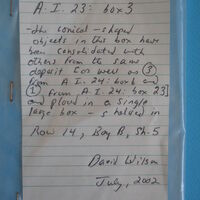 A.I. 23: box 3
- the conical-shaped
objects in this box have
been consolidated with
others from the same
deposit (or well as ③
from A.I. 24: box 6 and
① from A.I. 24: box 23]
and placed in a single
large box - shelved in
Row 14, Bay B, Sh. 5
David Wilson
July, 2002